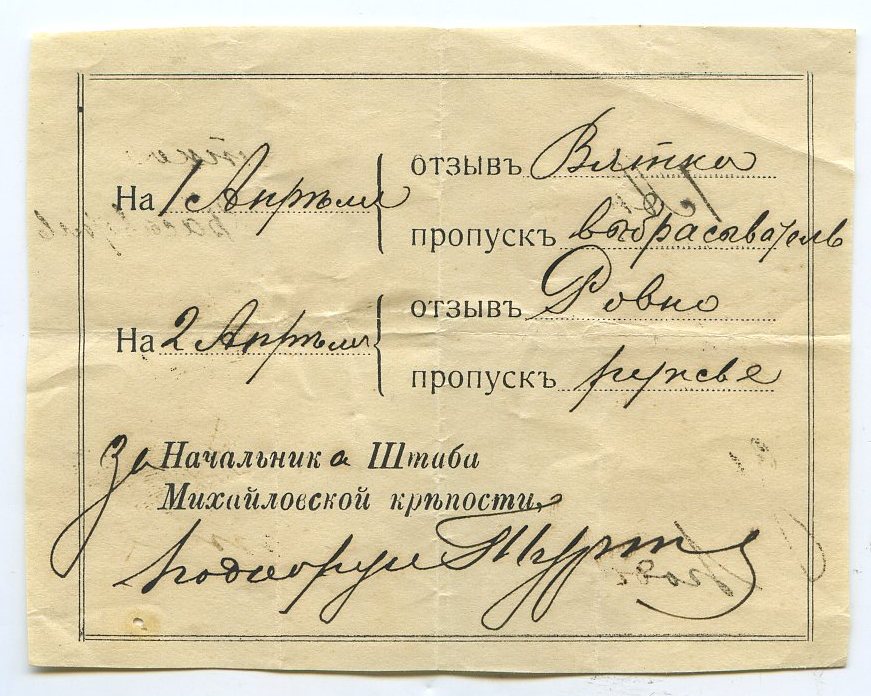 отзывъ Вятка
На 1 Апрѣля
пропускъ выбрасыватель
отзывъ Ровно
На 2 Апрѣля
пропускъ ружье
За Начальника Штаба
Михайловской крѣпости,